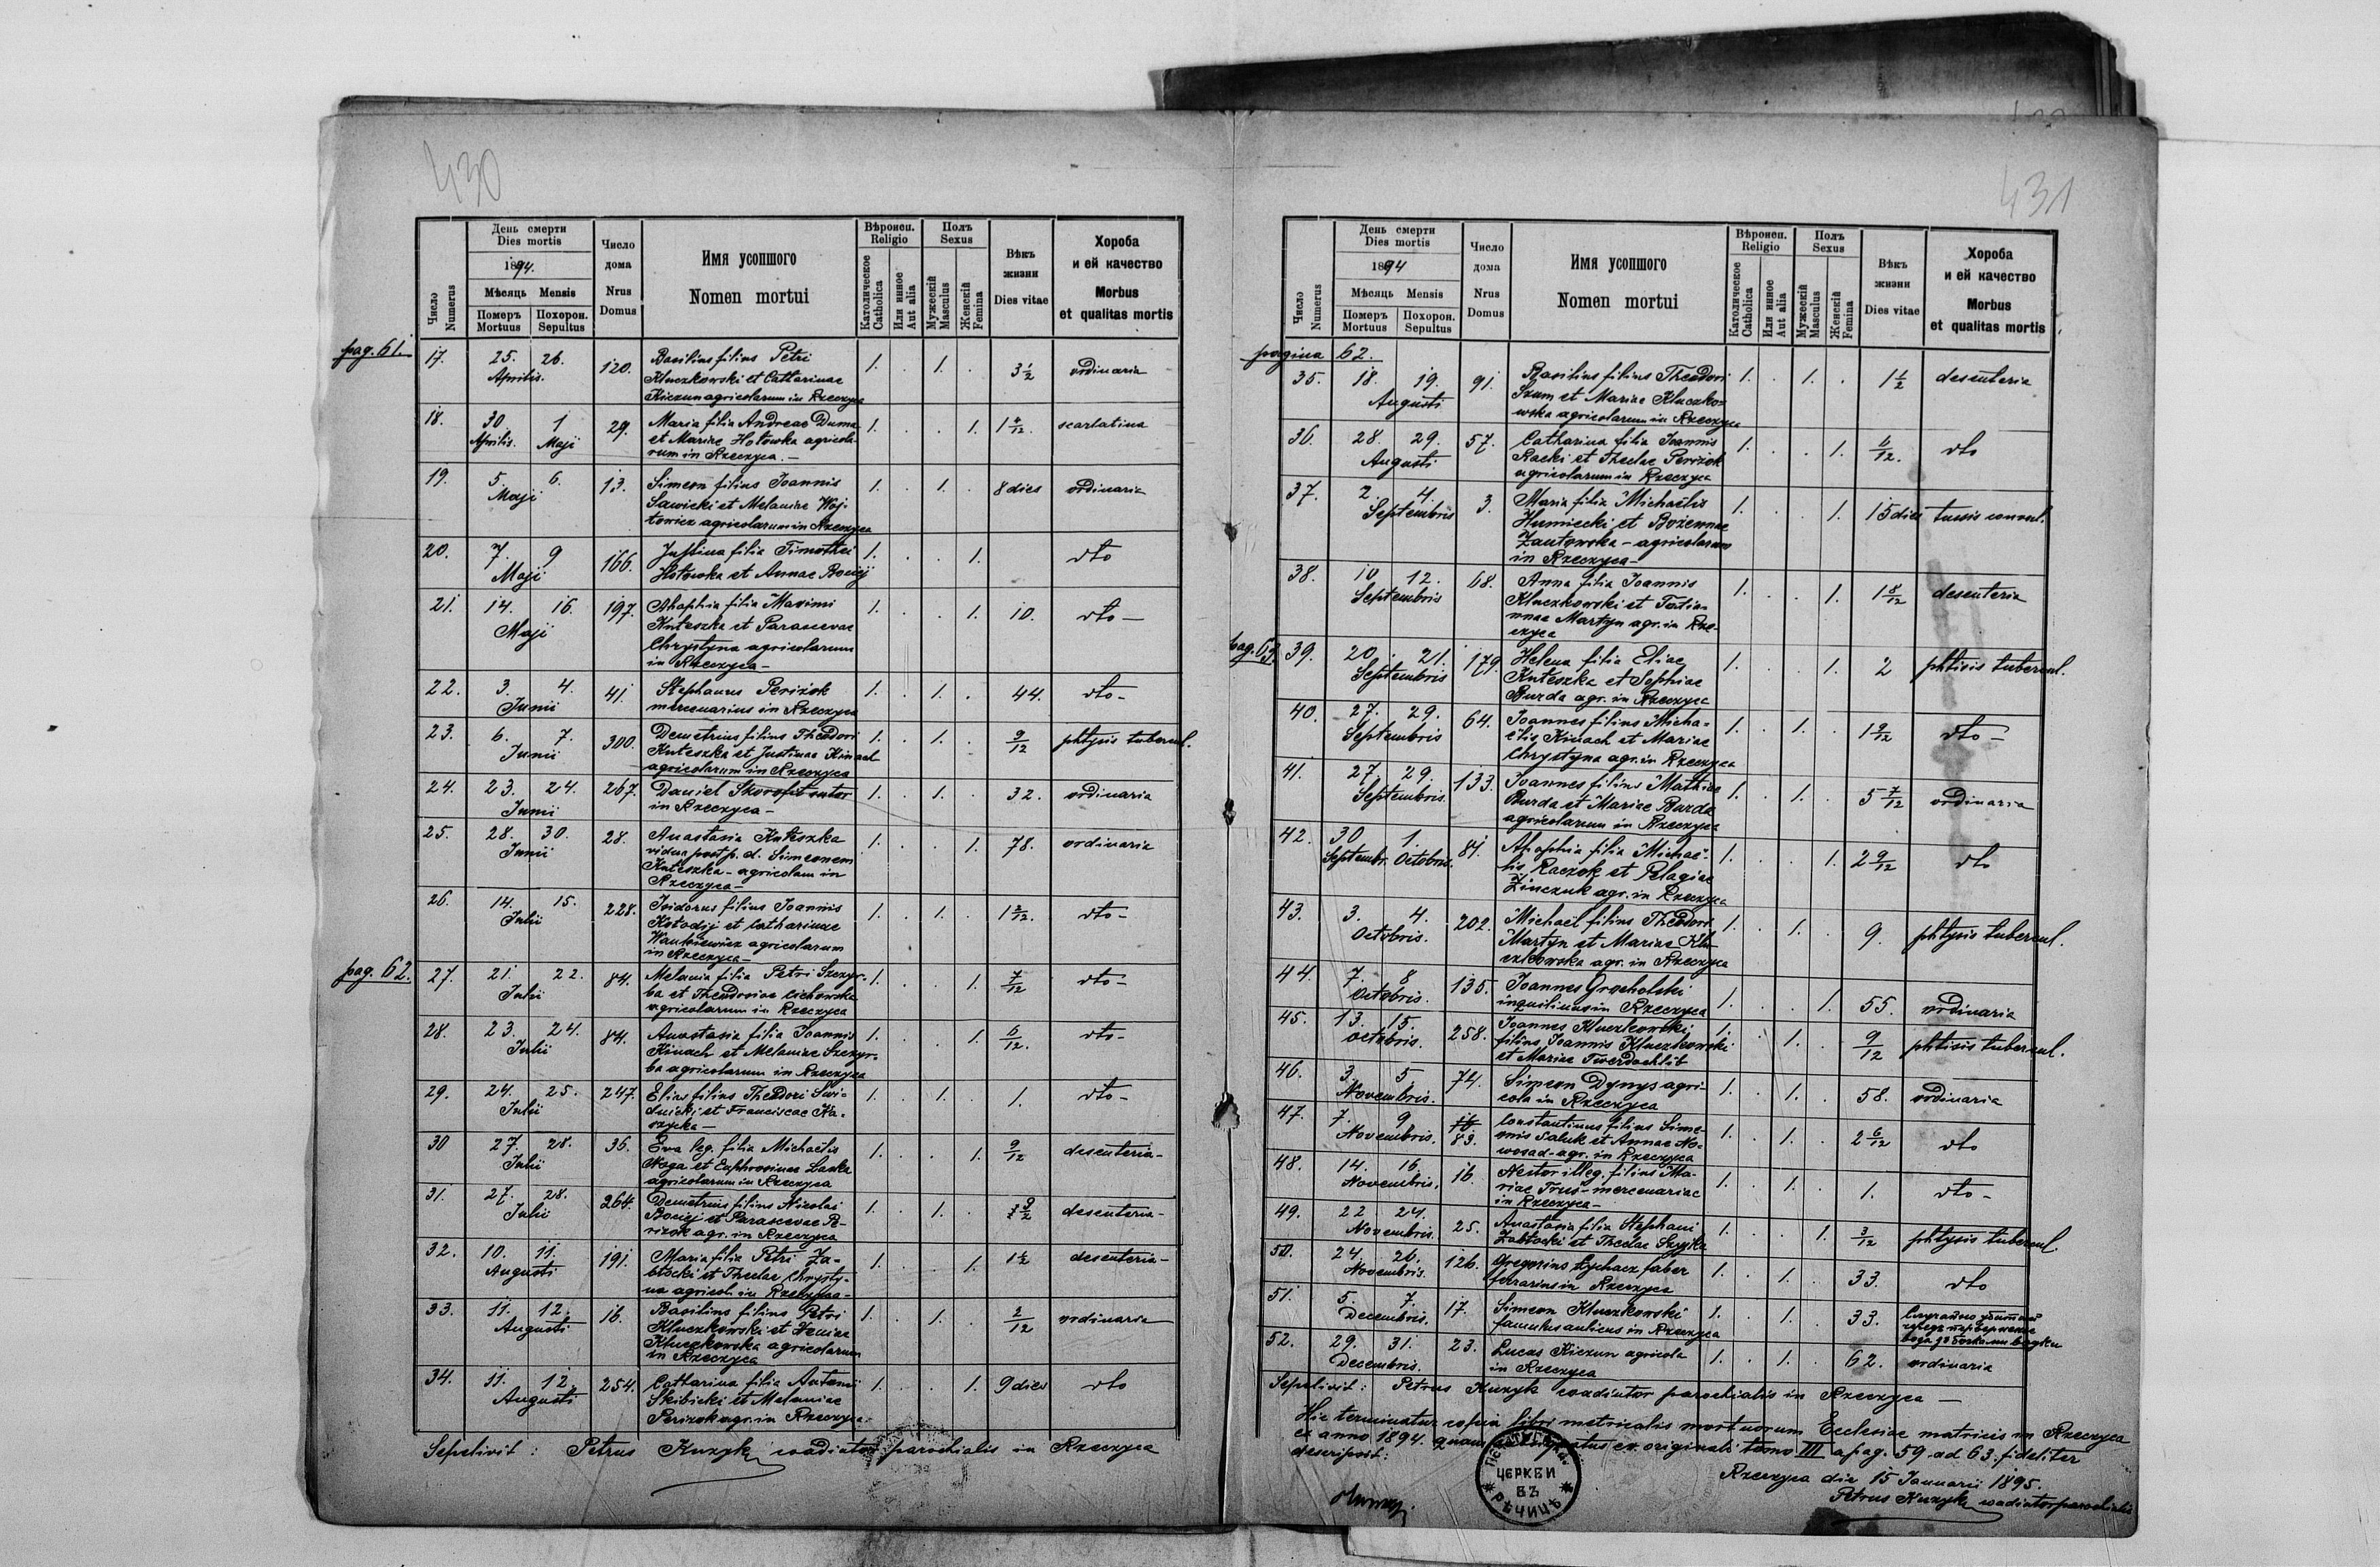 430
День смерти
Dies mortis
1894.
Мѣсяць Mensis
Померъ Похорон.
Mortuus Sepultus
Число
Numerus
Число
дома
Nrus
Domus
Имя усопшого
Nomen mortui
Вѣроисп.
Religio
Католическое
Catholica
Или инное
Aut alia
Полъ
Sexus
Мужескій
Masculus
Женскій
Femina
Вѣкъ
жизни
Dies vitae
Хороба
и ей качество
Morbus
et qualitas mortis
pag. 61.
17. 25. 26. Aprilis. 120. Basilius filius Petri 1. . 1. . 3 1/2 ordinaria
Kluczkowski et Catharinae
Kiczun agricolarum in Rzeczyca
18. 30. Aprilis. 1 Maji 29. Maria filia Andreae Duma 1. . . 1. scarlatina
et Mariae Hołowka agricola-
rum in Rzeczyca. –
19. 5. 6. Maji 13. Simeon filius Joannis 1. . 1. . 8 dies ordinaria
Sawicki et Melaniae Woj-
towicz agricolarum in Rzeczyca
20. 7. 9 Maji 166. Justina filia Timothei 1. . . 1. dto
Hołowka et Annae Bocij
21. 14. 16. Maji 197. Ahaphia filia Maximi 1. . . 1. 10. dto –
Kuteszka et Parascevae
Chrystyna agricolarum
in Rzeczyca –
22. 3. 4. Junii 41. Stephanus Perizok 1. . 1. . 44. dto –
mercenarius in Rzeczyca
23. 6. 7. Junii 300. Demetrius filius Theodori 1. . 1. . 9/12 phtysis tubercul.
Kuteszka et Justinae Kinach
agricolarum in Rzeczyca
24. 23. 24. Junii 267. Daniel in Rzeczyca – 1. . 1. . 32. ordinaria
25. 28. 30. Junii 28. Anastasia Kuteszka 1. . . 1. 78. ordinaria
vidua post p. d. Simeonem
Kuteszka – agricolam in
Rzeczyca –
26. 14. 15. Julii 228. Isidorus filius Joannis 1. . 1. . 1 2/12. dto –
Kołodij et Catharinae
Wankiewicz agricolarum
in Rzeczyca –
pag. 62.
27. 21. 22. Julii 84. Melania filia Petri Szczyr- 1. . . 1. 7/12 dto –
ba et Theodosiae Cichowska
agricolarum in Rzeczyca
28. 23. 24. Julii 84. Anastasia filia Joannis 1. . . 1. 6/12. dto –
Kinach et Melaniae Szczyr-
ba agricolarum in Rzeczyca
29. 24. 25. Julii 247. Elias filius Theodori Swi- 1. . 1. . 1. dto –
dnicki et Franciscae Ka-
30 27. 28. Julii 36. Eva leg. filia Michaelis 1. . . 1. 9/12 desenteria –
Noga et Euphrosinae Laska
agricolarum in Rzeczyca
31. 27. 28. Julii 264. Demetrius filius Nicolai 1. . 1. . desenteria –
Bocij et Parascevae Pe-
rizok agr. in Rzeczyca
32. 10. 11. Augusti 191. Maria filia Petri Za- 1. . . 1. 1 1/2 desenteria –
błocki et Theclae Chrysty-
na agricol. in Rzeczyca –
33. 11. 12. Augusti 16. Basilius filius Petri 1. . 1. . 2/12 ordinaria
Kluczkowski et Xeniae
Kluczkowska agricolarum
in Rzeczyca
34. 11. 12. Augusti 254. Catharina filia Antonii 1. . . 1. 9 dies dto
Skibicki et Melaniae
Perizok agr. in Rzeczyca.
Sepelivit : Petrus Kuzyk coadiutor parochialis in Rzeczyca
431
День смерти
Dies mortis
1894
Мѣсяць Mensis
Померъ Похорон.
Mortuus Sepultus
Число
Numerus
Число
дома
Nrus
Domus
Имя усопшого
Nomen mortui
Вѣроисп.
Religio
Католическое
Catholica
Или инное
Aut alia
Полъ
Sexus
Мужескій
Masculus
Женскій
Femina
Вѣкъ
жизни
Dies vitae
Хороба
и ей качество
Morbus
et qualitas mortis
pagina 62.
35. 18. 19. Augusti 91. Basilius filius Theodori 1. . 1. . 1 1/2 desenteria
Szum et Mariae Kluczko-
wska agricolarum in Rzeczyca
36. 28. 29. Augusti 57. Catharina filia Joannis 1. . . 1. 6/12. dto
Racki et Theclae Perizok
agricolarum in Rzeczyca
37. 2. 4. Septembris 3. Maria filia Michaëlis 1. . . 1. 15 dies tussis convul.
Humiecki et Bożennae
Żautowska – agricolarum
in Rzeczyca –
38. 10 12. Septembris 68. Anna filia Joannis 1. . . 1. 1 8/12 desenteria
Kluczkowski et Tatia-
nnae Martyn agr. in Rze-
czyca
pag. 63.
39. 20. 21. Septembris 179. Helena filia Eliae 1. . . 1. 2 phtisis tubercul.
Kuteszka et Sophiae
Burda agr. in Rzeczyca
40. 27. 29. Septembris 64. Joannes filius Micha- 1. . 1. . 1 9/12 dto –
elis Kinach et Mariae
Chrystyna agr. in Rzeczyca
41. 27. 29. Septembris. 133. Joannes filius Mathiae 1. . 1. . 5 7/12 ordinaria
Burda et Mariae Burda
agricolarum in Rzeczyca
42. 30 Septembr. 1. Octobris. 84. Ahaphia filia Michaë- 1. . . 1. 2 9/12 dto
lis Raczok et Pelagiae
Zinczuk agr. in Rzeczyca
43. 3. 4. Octobris. 202. Michaël filius Theodori 1. . 1. . 9. phtysis tubercul.
Martyn et Mariae Klu-
czkowska agr. in Rzeczyca
44. 7. 8 Octobris. 135. Joannes Grocholski 1. . . 1. 55. ordinaria
inquilinus in Rzeczyca
45. 13. 15. Octobris. 258. Joannes Kluczkowski 1. . 1. . 9/12 phtisis tubercul.
filius Joannis Kluczkowski
et Mariae Twerdochlib
46. 3. 5 Novembris. 74. Simeon Dynys agri- 1. . 1. . 58. ordinaria
cola in Rzeczyca
47. 7. 9 Novembris. 83. Constantinus filius Sime- 1. . 1. . 2 6/12 dto
onis Saluk et Annae No-
wosad – agr. in Rzeczyca
48. 14. 16. Novembris. 16. Nestor illeg. filius Ma- 1. . 1. . 1. dto –
riae Trus – mercenariae
in Rzeczyca –
49. 22 24. Novembris. 25. Anastasia filia Stephani 1. . . 1. 3/12 phtysis tubercul.
Zabłocki et Theclae Szyjka
50. 24. 26. Novembris. 126. Gregorius Łychacz faber 1. . 1. . 33. dto
ferrarius in Rzeczyca
51. 5. 7. Decembris. 17. Simeon Kluczkowski 1. . 1. . 33.
famulus aulicus in Rzeczyca
52. 29. 31. Decembris. 23. Lucas Kiczun agricola 1. . 1. . 62. ordinaria
in Rzeczyca
Sepelivit : Petrus Kuzyk coadiutor parochialis in Rzeczyca –
Hic terminatur copia libri metricalis mortuorum Ecclesiae matricis in Rzeczyca
ex anno 1894. quam ex originali tomo III a pag. 59. ad 63. fideliter
descripsit :
Rzeczyca die 15 Januarii 1895.
Petrus Kuzyk coadiutor parochialis
ЦЕРКВИ
ВЪ
РѢЧИЦѢ